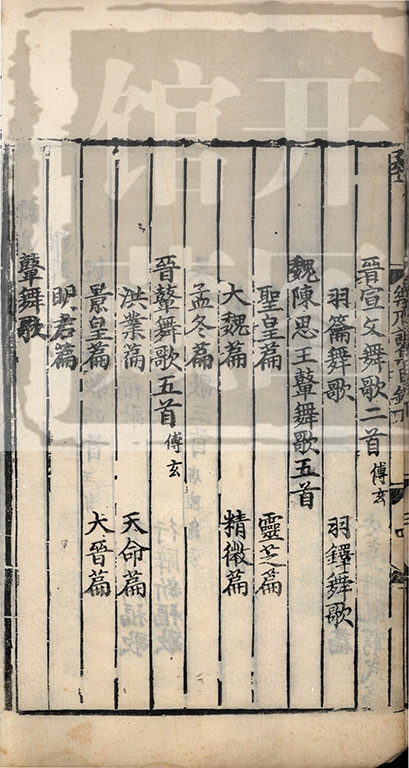 晉宣文舞歌二首 傅玄
羽籥舞歌 羽鐸舞歌
魏陳思王鼙舞歌五首
聖皇篇 靈芝篇
大魏篇 精微篇
孟冬篇
晉鼙舞歌五首 傅玄
洪業篇 天命篇
景皇篇 大晉篇
明君篇
鼙舞歌